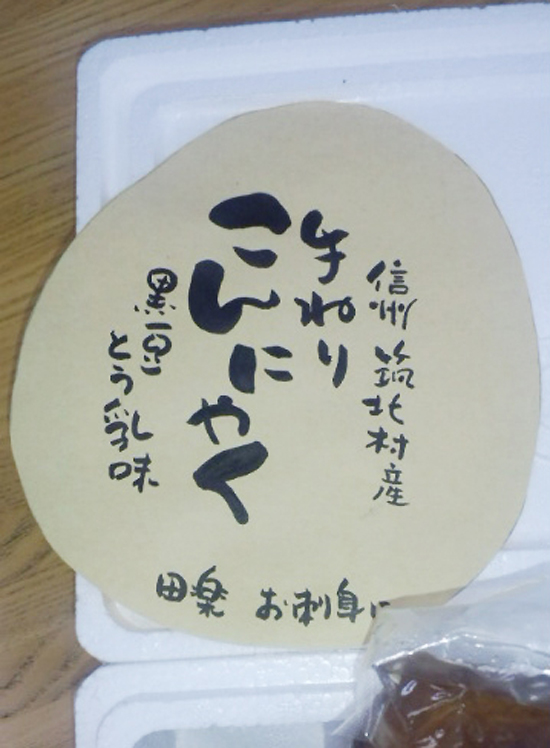 信州 筑北村産
手ねり
こんにゃく
黒豆
とう乳味
田楽 お刺身に